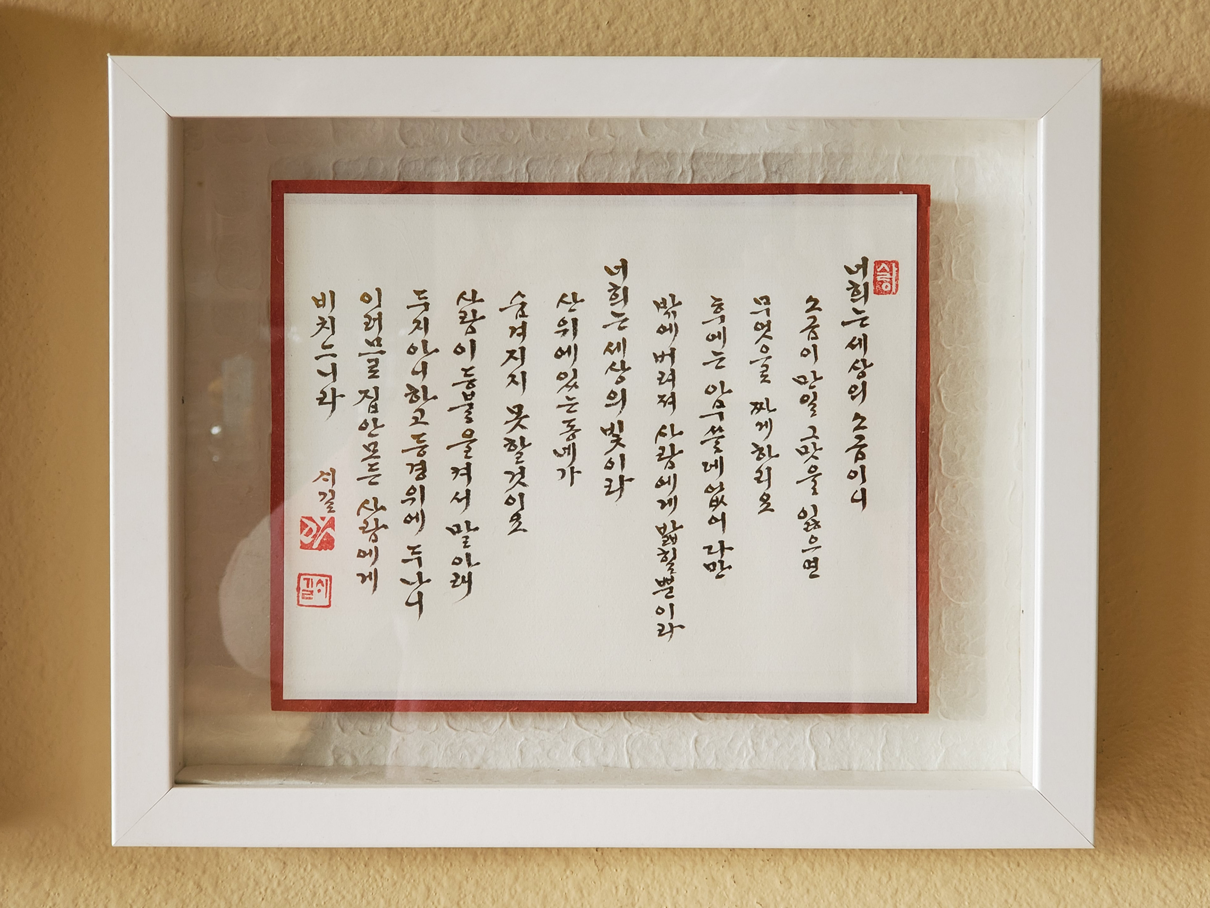 사랑
너희는 세상의 소금이니
소금이 만일 그 맛을 잃으면
무엇으로 짜게 하리오
후에는 아무 쓸데 없어 다만
밖에 버려져 사람에게 밟힐 뿐이라
너희는 세상의 빛이라
산 위에 있는 동네가
숨겨지지 못할 것이요
사람이 등불을 켜서 말 아래
두지 아니하고 등경 위에 두나니
이러므로 집안 모든 사람에게
비치느니라
서길